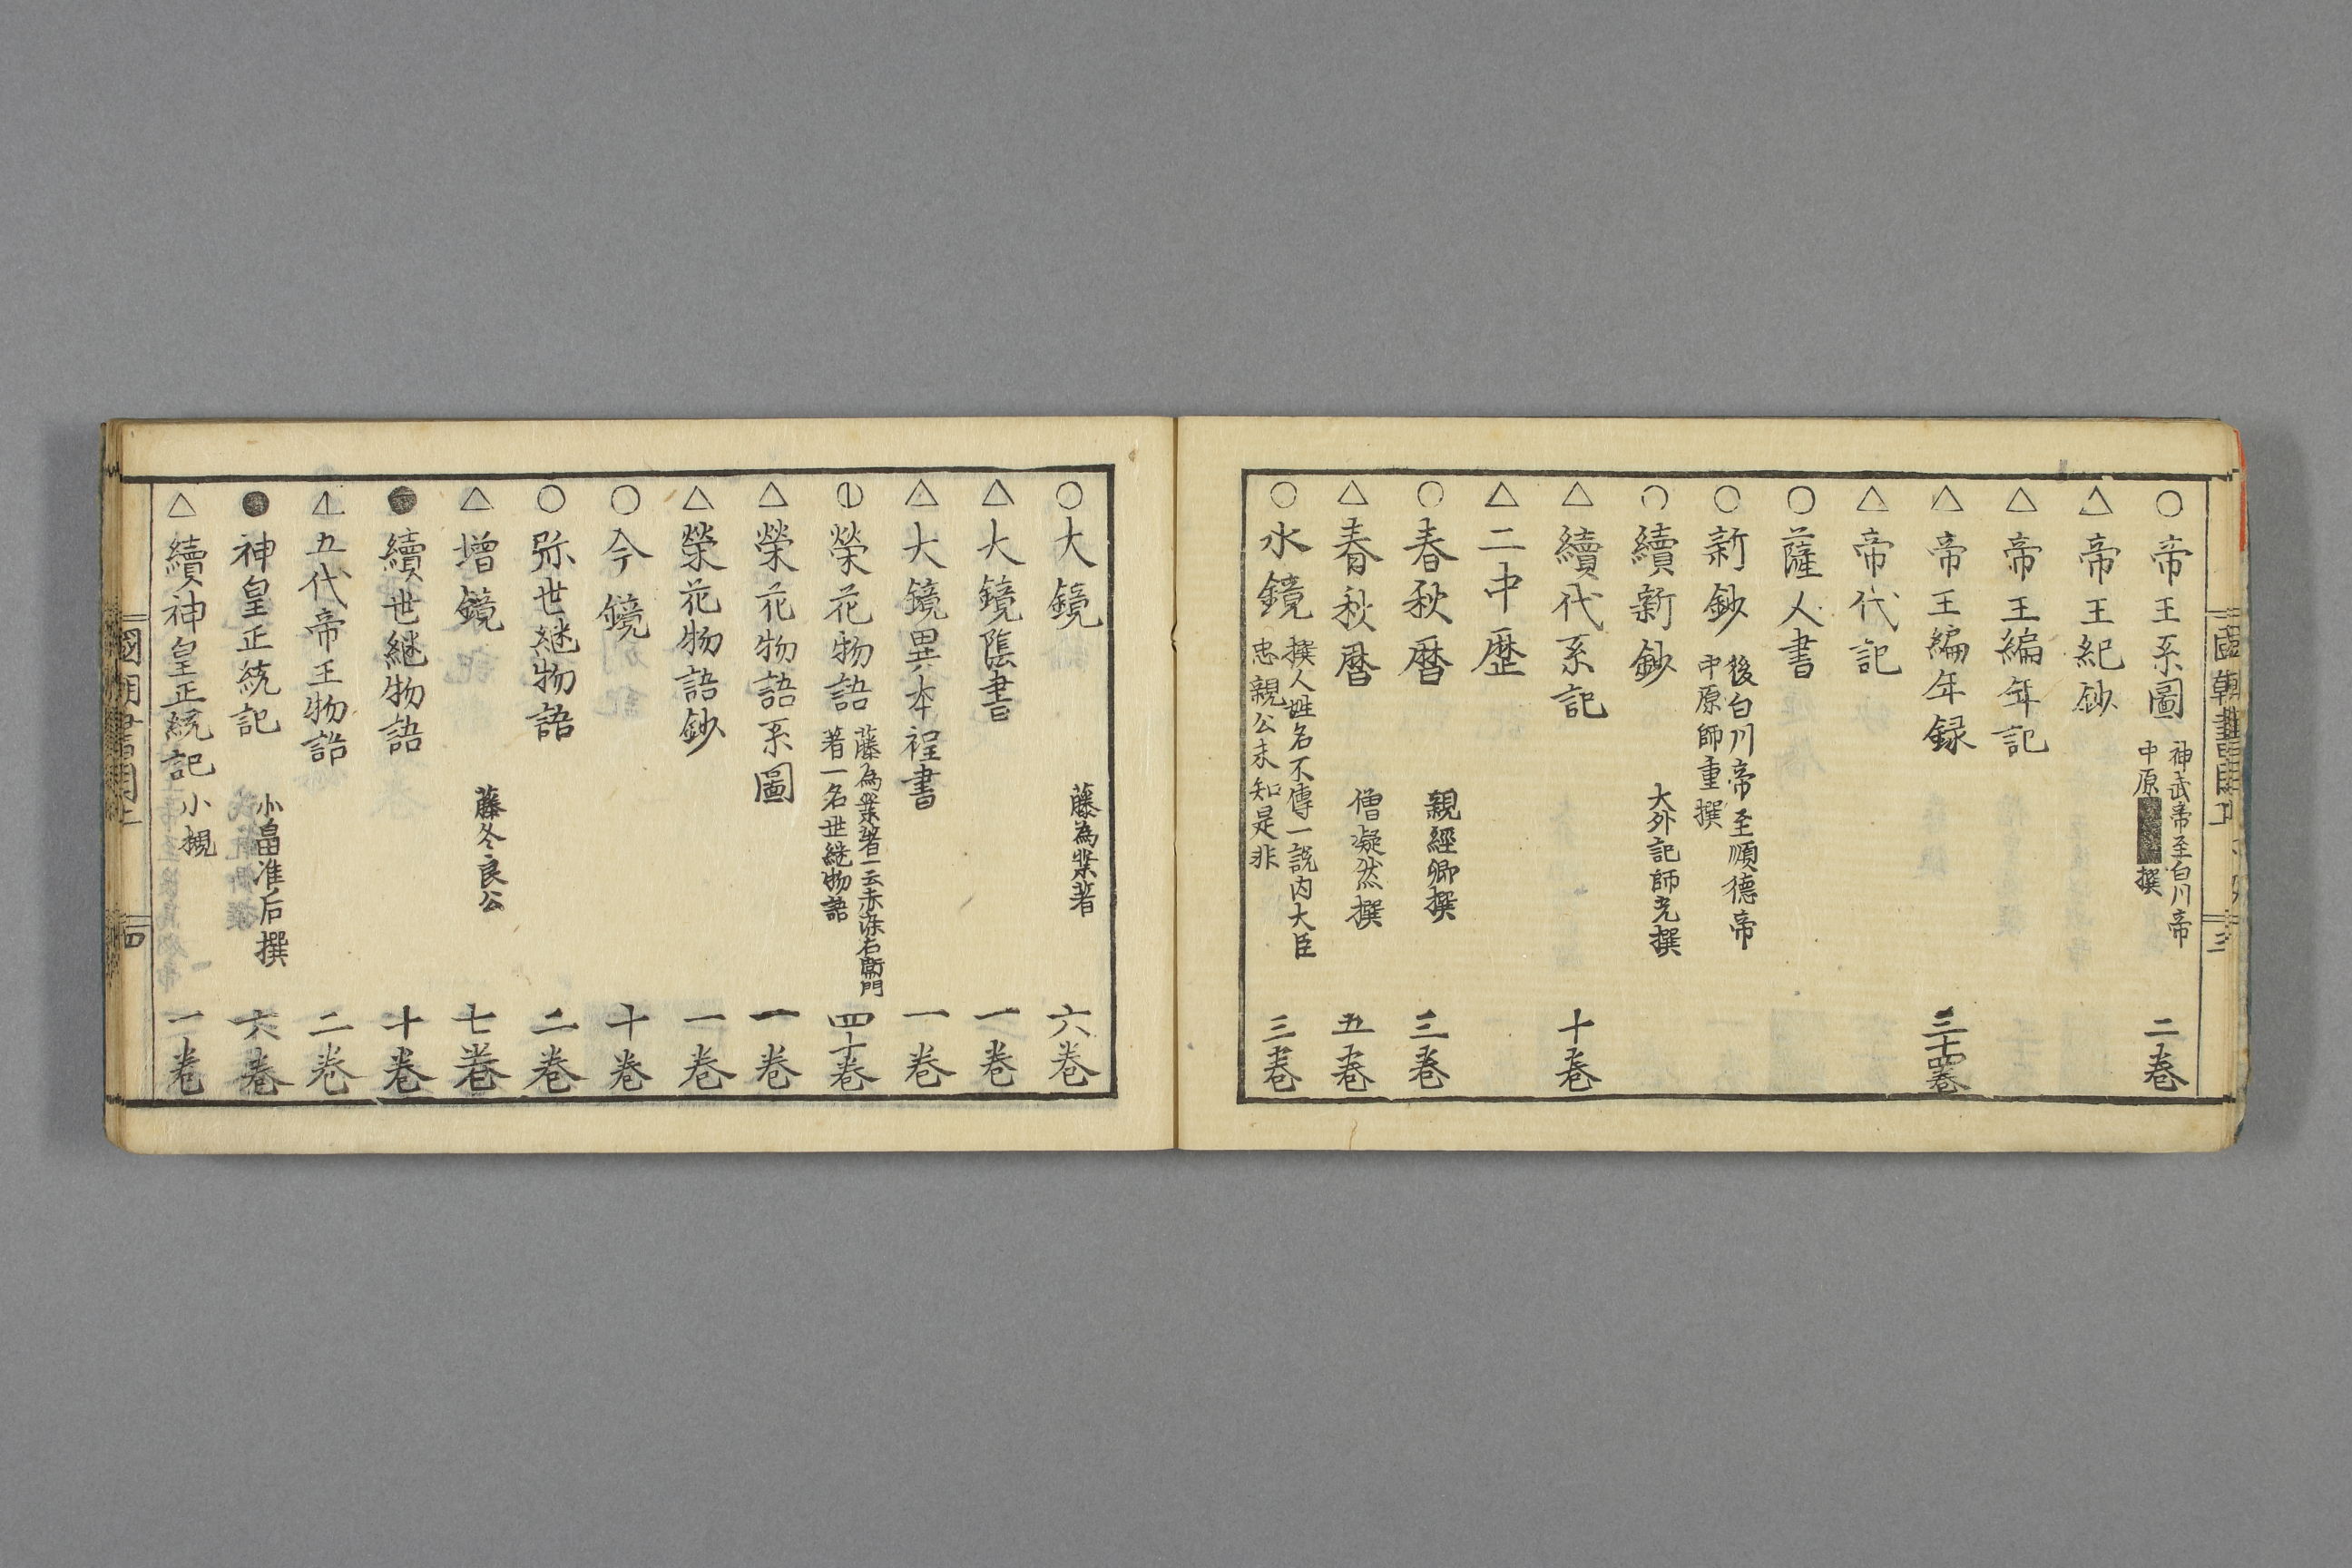 ○帝王系圖 神武帝至白川帝 中原■撰 二卷
△帝王紀鈔
△帝王編年記
△帝王編年録 三十四卷
△帝代記
○薩人書
○新鈔 後白川帝至順德帝 中原師重撰
○續新鈔 大外記師光撰
△續代系記 十卷
△二中歴
○春秋暦 親經卿撰 三卷
△春秋暦 僧凝然撰 五卷
○水鏡 撰人姓名不傳一説内大臣 忠親公未知是非 三卷
○大鏡 藤為業著 六卷
△大鏡陰書 一卷
△大鏡異本裎書 一卷
榮花物語 藤為業著一云赤染右衛門 著一名世継物語 四十卷
△榮花物語系圖 一卷
△榮花物語鈔 一卷
○今鏡 十卷
○弥世継物語 二卷
△增鏡 藤冬良公 七卷
●續世継物語 十卷
五代帝王物語 二卷
●神皇正統記 小畠准后撰 六卷
△續神皇正統記 小槻 一卷
國朝書目上
三
四